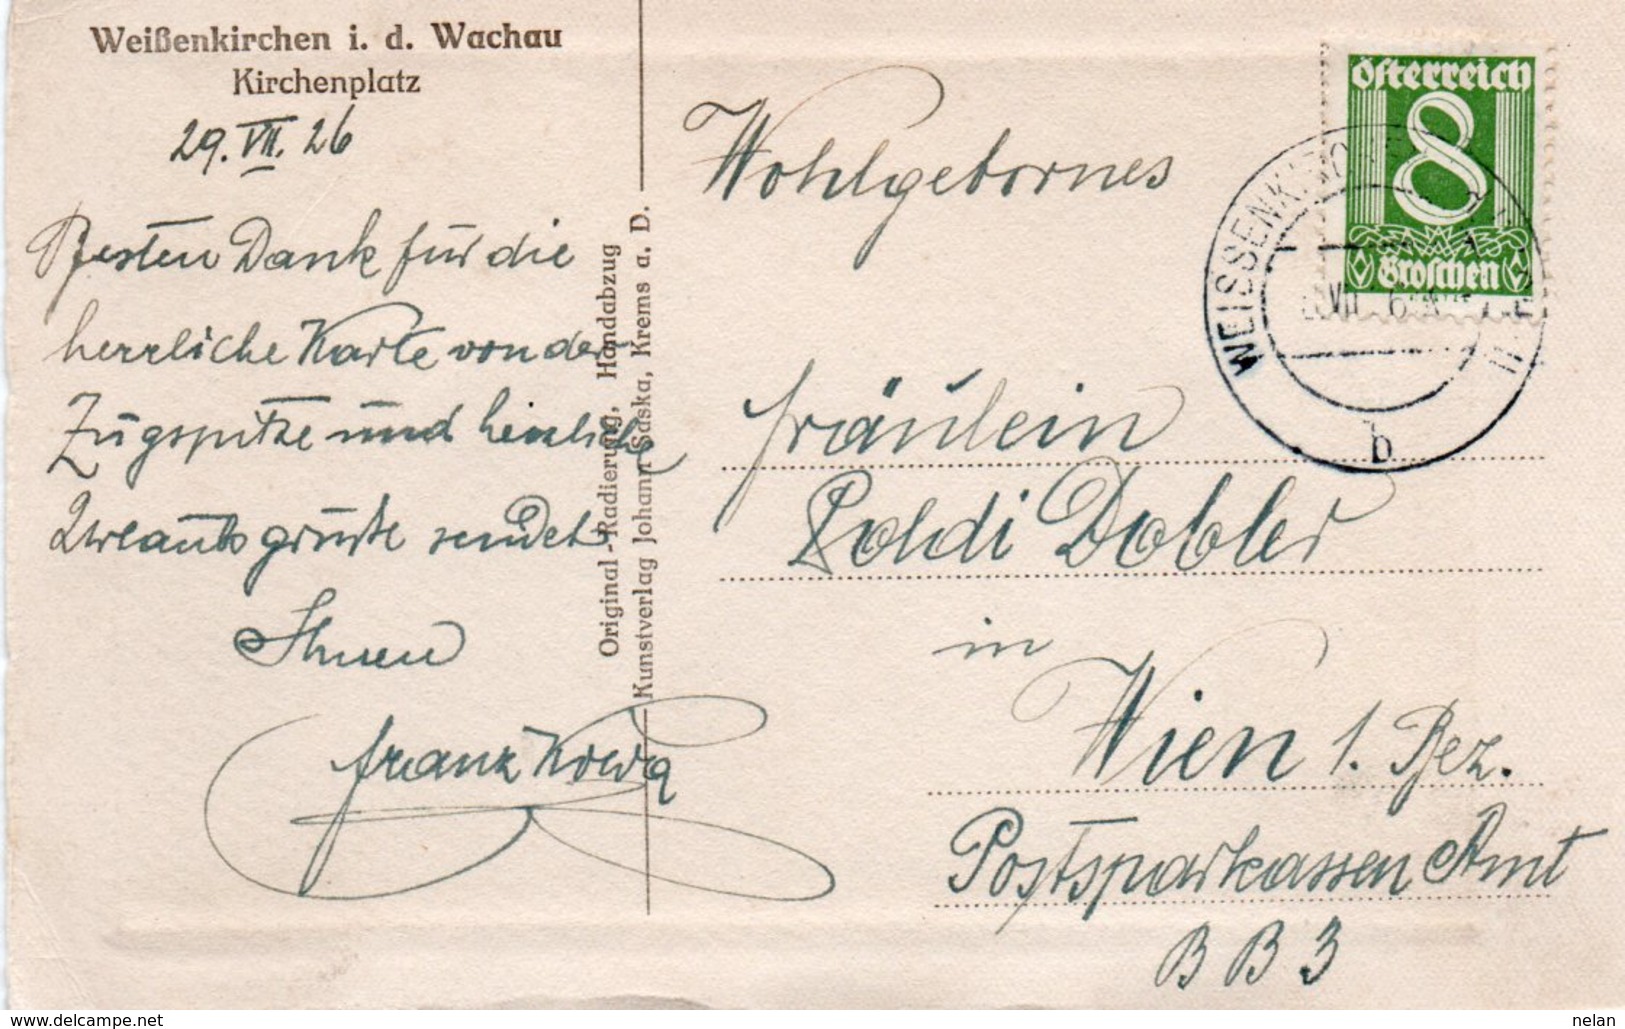 Weißenkirchen i. d. Wachau
Kirchenplatz
29. VII. 26
Besten Dank für die
herrliche Karte von der
Zugspitze und herzliche
Urlaubsgrüße sendet
Ihnen
Franz
Original-Radierung, Handabzug
Kunstverlag Johann Saska, Krems a. D.
Österreich
8
Groschen
WEISSENKIRCHEN
b
Wohlgebornes
Fräulein
Poldi Dobler
in
Wien 1. Bez.
Postsparkassen Amt
B B 3
www.delcampe.net
nelan